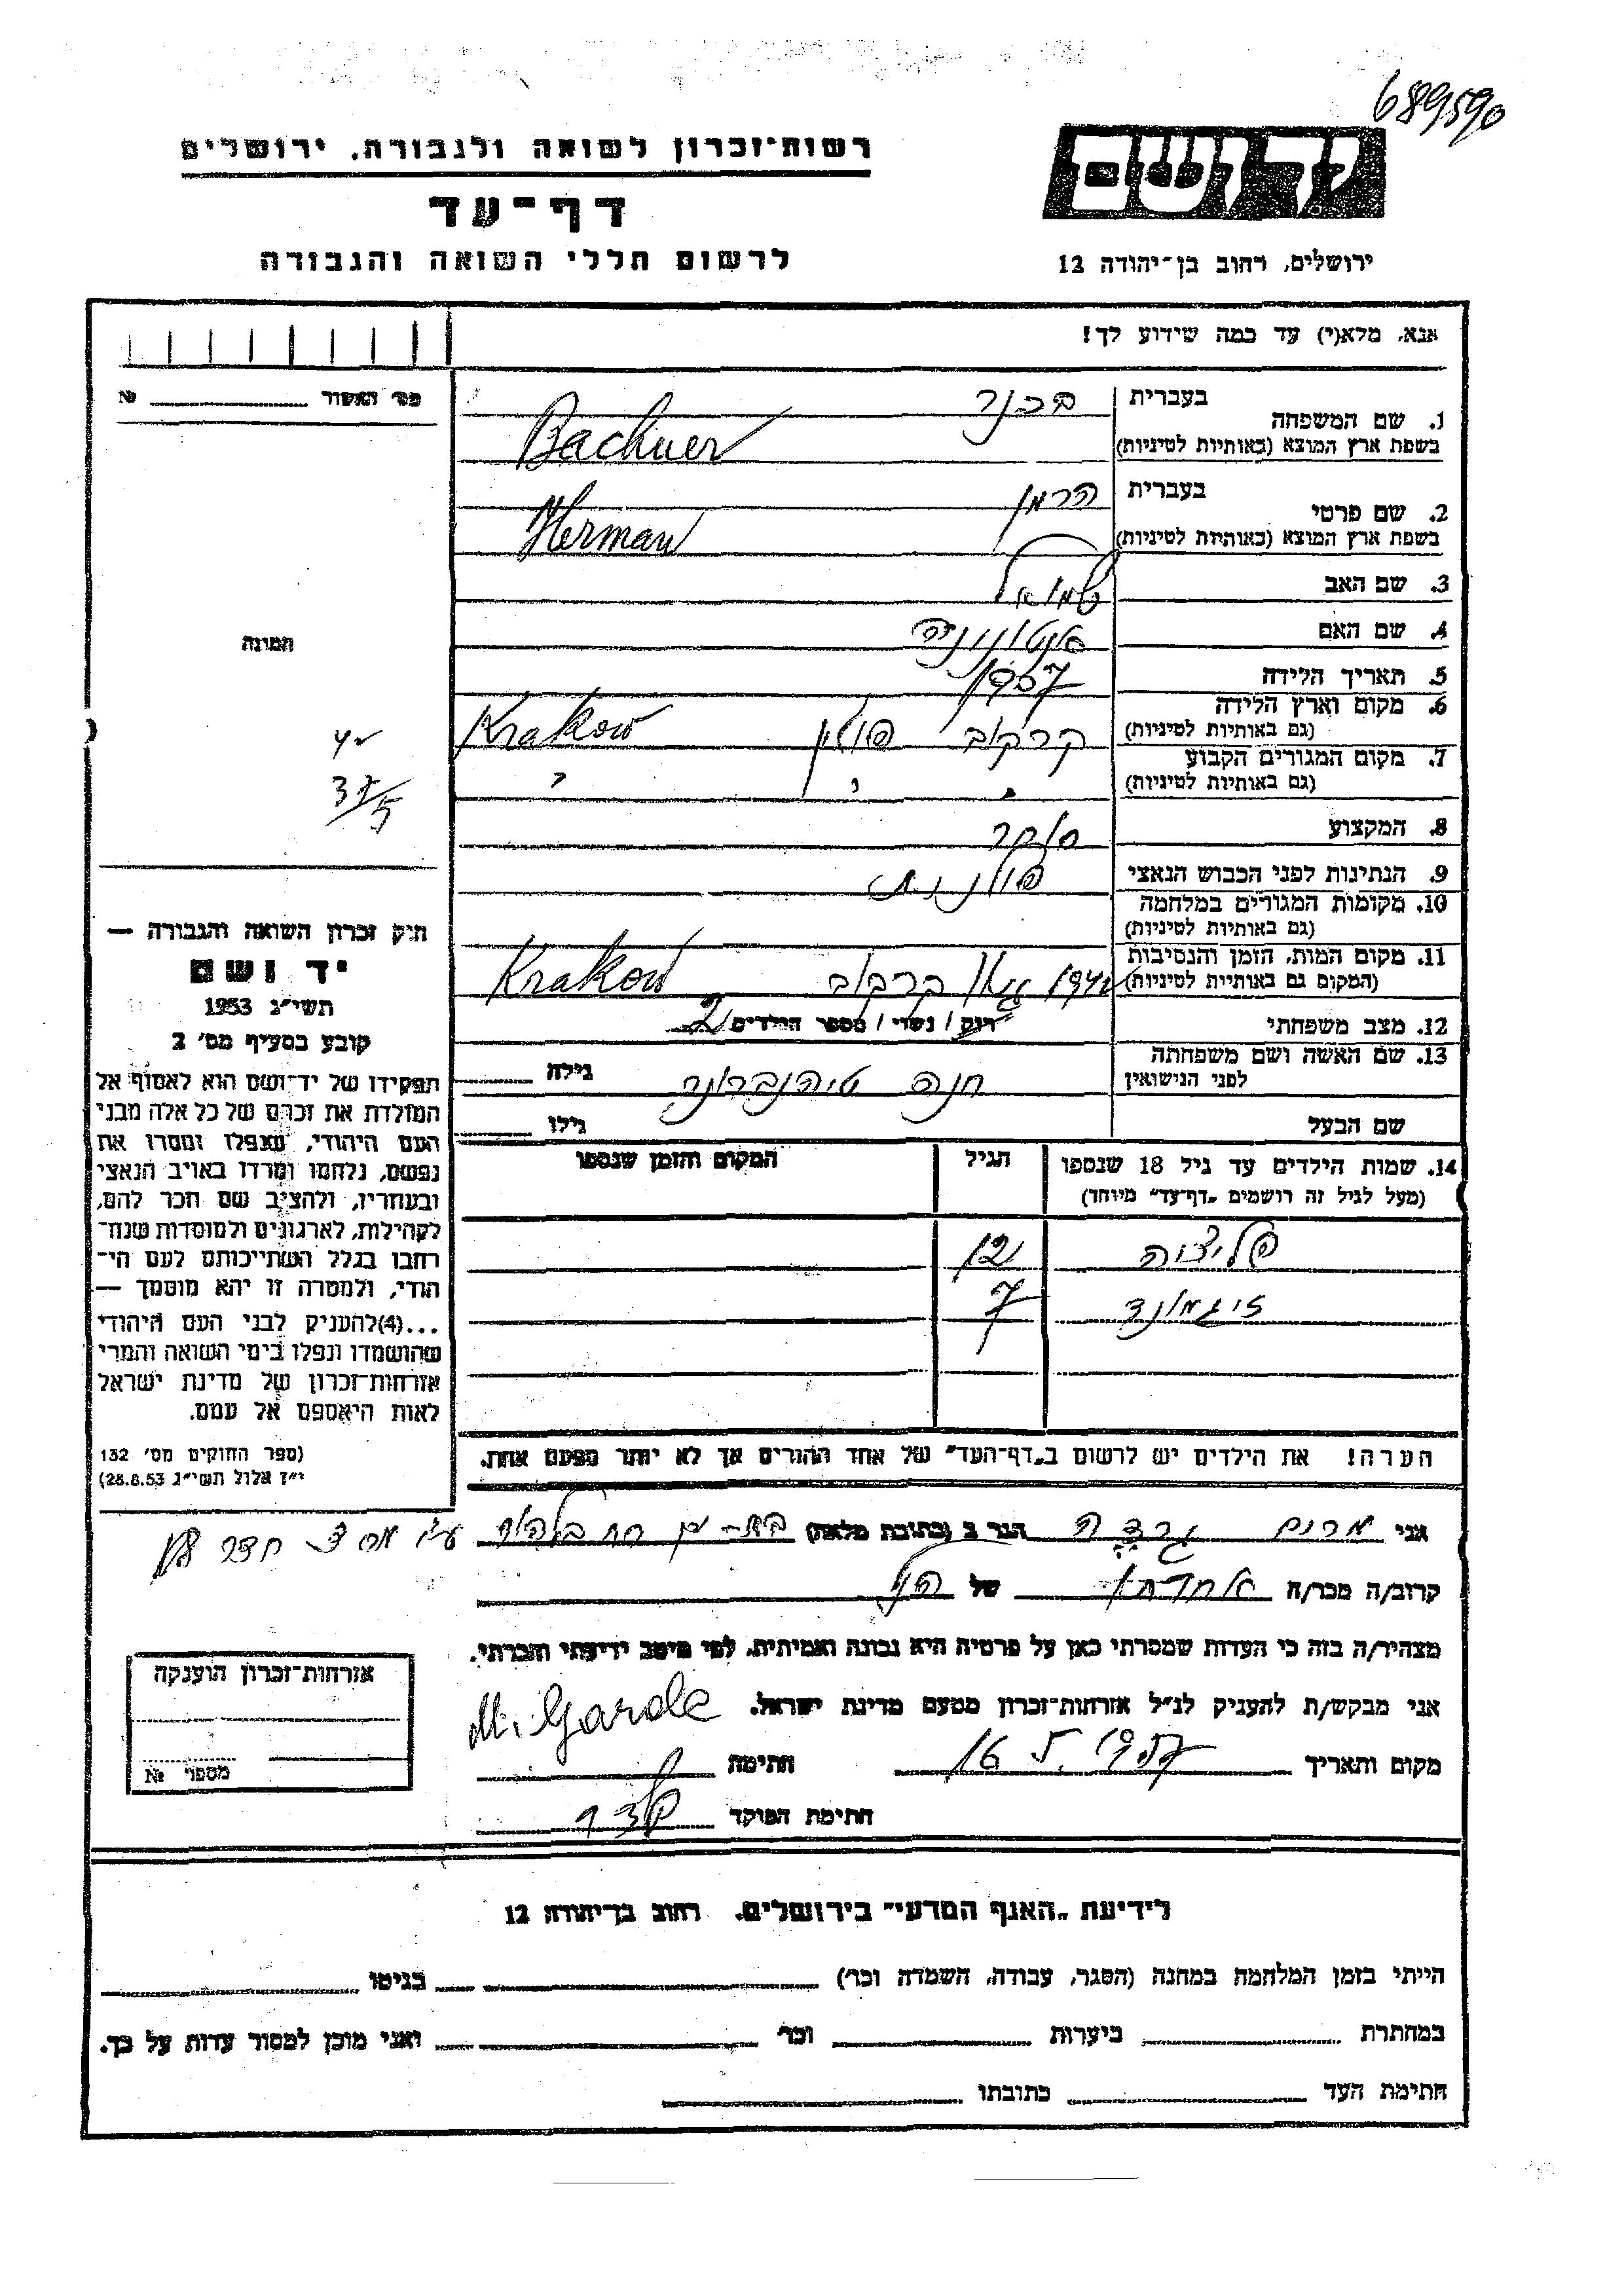 689590
רשות-זכרון לשואה ולגבורה, ירושלים
ידושם
דף-עד
לרשום חללי השואה והגבורה
ירושלים, רחוב בן-יהודה 12
אנא, מלא(י) עד כמה שידוע לך!
מס' האשור №
1. שם המשפחה
בעברית בכנר
בשפת ארץ המוצא (באותיות לטיניות) Bachner
2. שם פרטי
בעברית הרמן
בשפת ארץ המוצא (באותיות לטיניות) Herman
3. שם האב שמואל
4. שם האם אנטונינה
5. תאריך הלידה
6. מקום וארץ הלידה
(גם באותיות לטיניות) קרקוב פולין Krakow
7. מקום המגורים הקבוע
(גם באותיות לטיניות) " " "
8. המקצוע סוחר
9. הנתינות לפני הכבוש הנאצי פולנית
10. מקומות המגורים במלחמה
(גם באותיות לטיניות)
11. מקום המות, הזמן והנסיבות
(המקום גם באותיות לטיניות) קרקוב Krakow
12. מצב משפחתי רוק / נשוי / מספר הילדים 2
13. שם האשה ושם משפחתה
לפני הנישואין חנה גילה
שם הבעל גילו
14. שמות הילדים עד גיל 18 שנספו הגיל המקום והזמן שנספו
(מעל לגיל זה רושמים "דף-עד" מיוחד)
פליציה 12
זיגמונד 7
הערה! את הילדים יש לרשום ב"דף-העד" של אחד ההורים אך לא יותר מפעם אחת.
תמונה
חוק זכרון השואה והגבורה —
יד ושם
תשי"ג 1953
קובע בסעיף מס' 2
תפקידו של יד-ושם הוא לאסוף אל
המולדת את זכרם של כל אלה מבני
העם היהודי, שנפלו ומסרו את
נפשם, נלחמו ומרדו באויב הנאצי
ובעוזריו, ולהציב שם וזכר להם,
לקהילות, לארגונים ולמוסדות שנח-
רבו בגלל השתייכותם לעם הי-
הודי, ולמטרה זו יהא מוסמך —
...(4)להעניק לבני העם היהודי
שהושמדו ונפלו בימי השואה והמרי
אזרחות-זכרון של מדינת ישראל
לאות היאספם אל עמם.
(ספר החוקים מס' 132
י"ז אלול תשי"ג 28.8.53)
אני גרדה הגר ב (כתובת מלאה) בת-ים רח
קרוב/ה מכר/ה של הנ"ל
מצהיר/ה בזה כי העדות שמסרתי כאן על פרטיה היא נכונה ואמיתית, לפי מיטב ידיעתי והכרתי.
אני מבקש/ת להעניק לנ"ל אזרחות-זכרון מטעם מדינת ישראל.
M. Garda
מקום ותאריך 16.5.1957 חתימה
חתימת הפוקד
אזרחות-זכרון הוענקה
מספרי №
לידיעת "האגף המדעי" בירושלים, רחוב בן-יהודה 12
הייתי בזמן המלחמה במחנה (הסגר, עבודה, השמדה וכו') בגיטו
במחתרת ביערות וכו' ואני מוכן למסור עדות על כך.
חתימת העד כתובתו